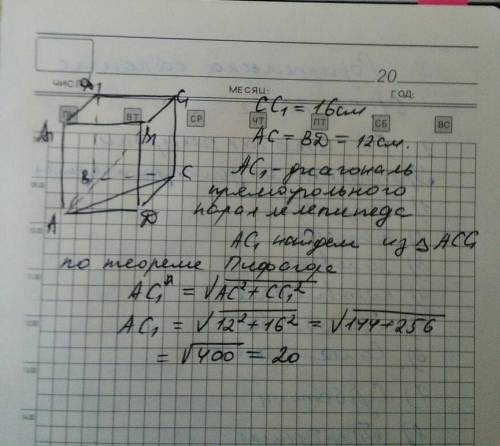 20
ЧИСЛО
МЕСЯЦ:
ГОД:
ПН ВТ СР ЧТ ПТ СБ ВС
C1
A1
B
C
A
D
CC1 = 16см
AC = BD = 12см.
AC1 - диагональ
прямоугольного
параллелепипеда
AC1 найдем из △ ACC1
по теореме Пифагора
AC1 = √AC² + CC1²
AC1 = √12² + 16² = √144 + 256
= √400 = 20